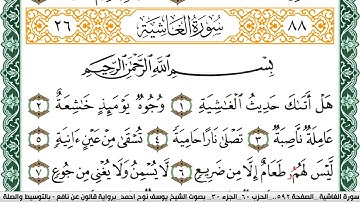 ٨٨ سُورَةُ الغَاشِيَةِ ٢٦
بِسْمِ اللَّهِ الرَّحْمَٰنِ الرَّحِيمِ
هَلْ أَتَىٰكَ حَدِيثُ الْغَٰشِيَةِ ١ وُجُوهٌ يَوْمَئِذٍ خَٰشِعَةٌ ٢
عَامِلَةٌ نَّاصِبَةٌ ٣ تَصْلَىٰ نَارًا حَامِيَةً ٤ تُسْقَىٰ مِنْ عَيْنٍ ءَانِيَةٍ ٥
لَّيْسَ لَهُمْ طَعَامٌ إِلَّا مِن ضَرِيعٍ ٦ لَّا يُسْمِنُ وَلَا يُغْنِى مِن جُوعٍ ٧
سورة الغاشية _ الصفحة ٥٩٢ _ الحزب ٦٠ _ الجزء ٣٠ _ بصوت الشيخ يوسف نوح احمد _ برواية قالون عن نافع - بالتوسيط والصلة